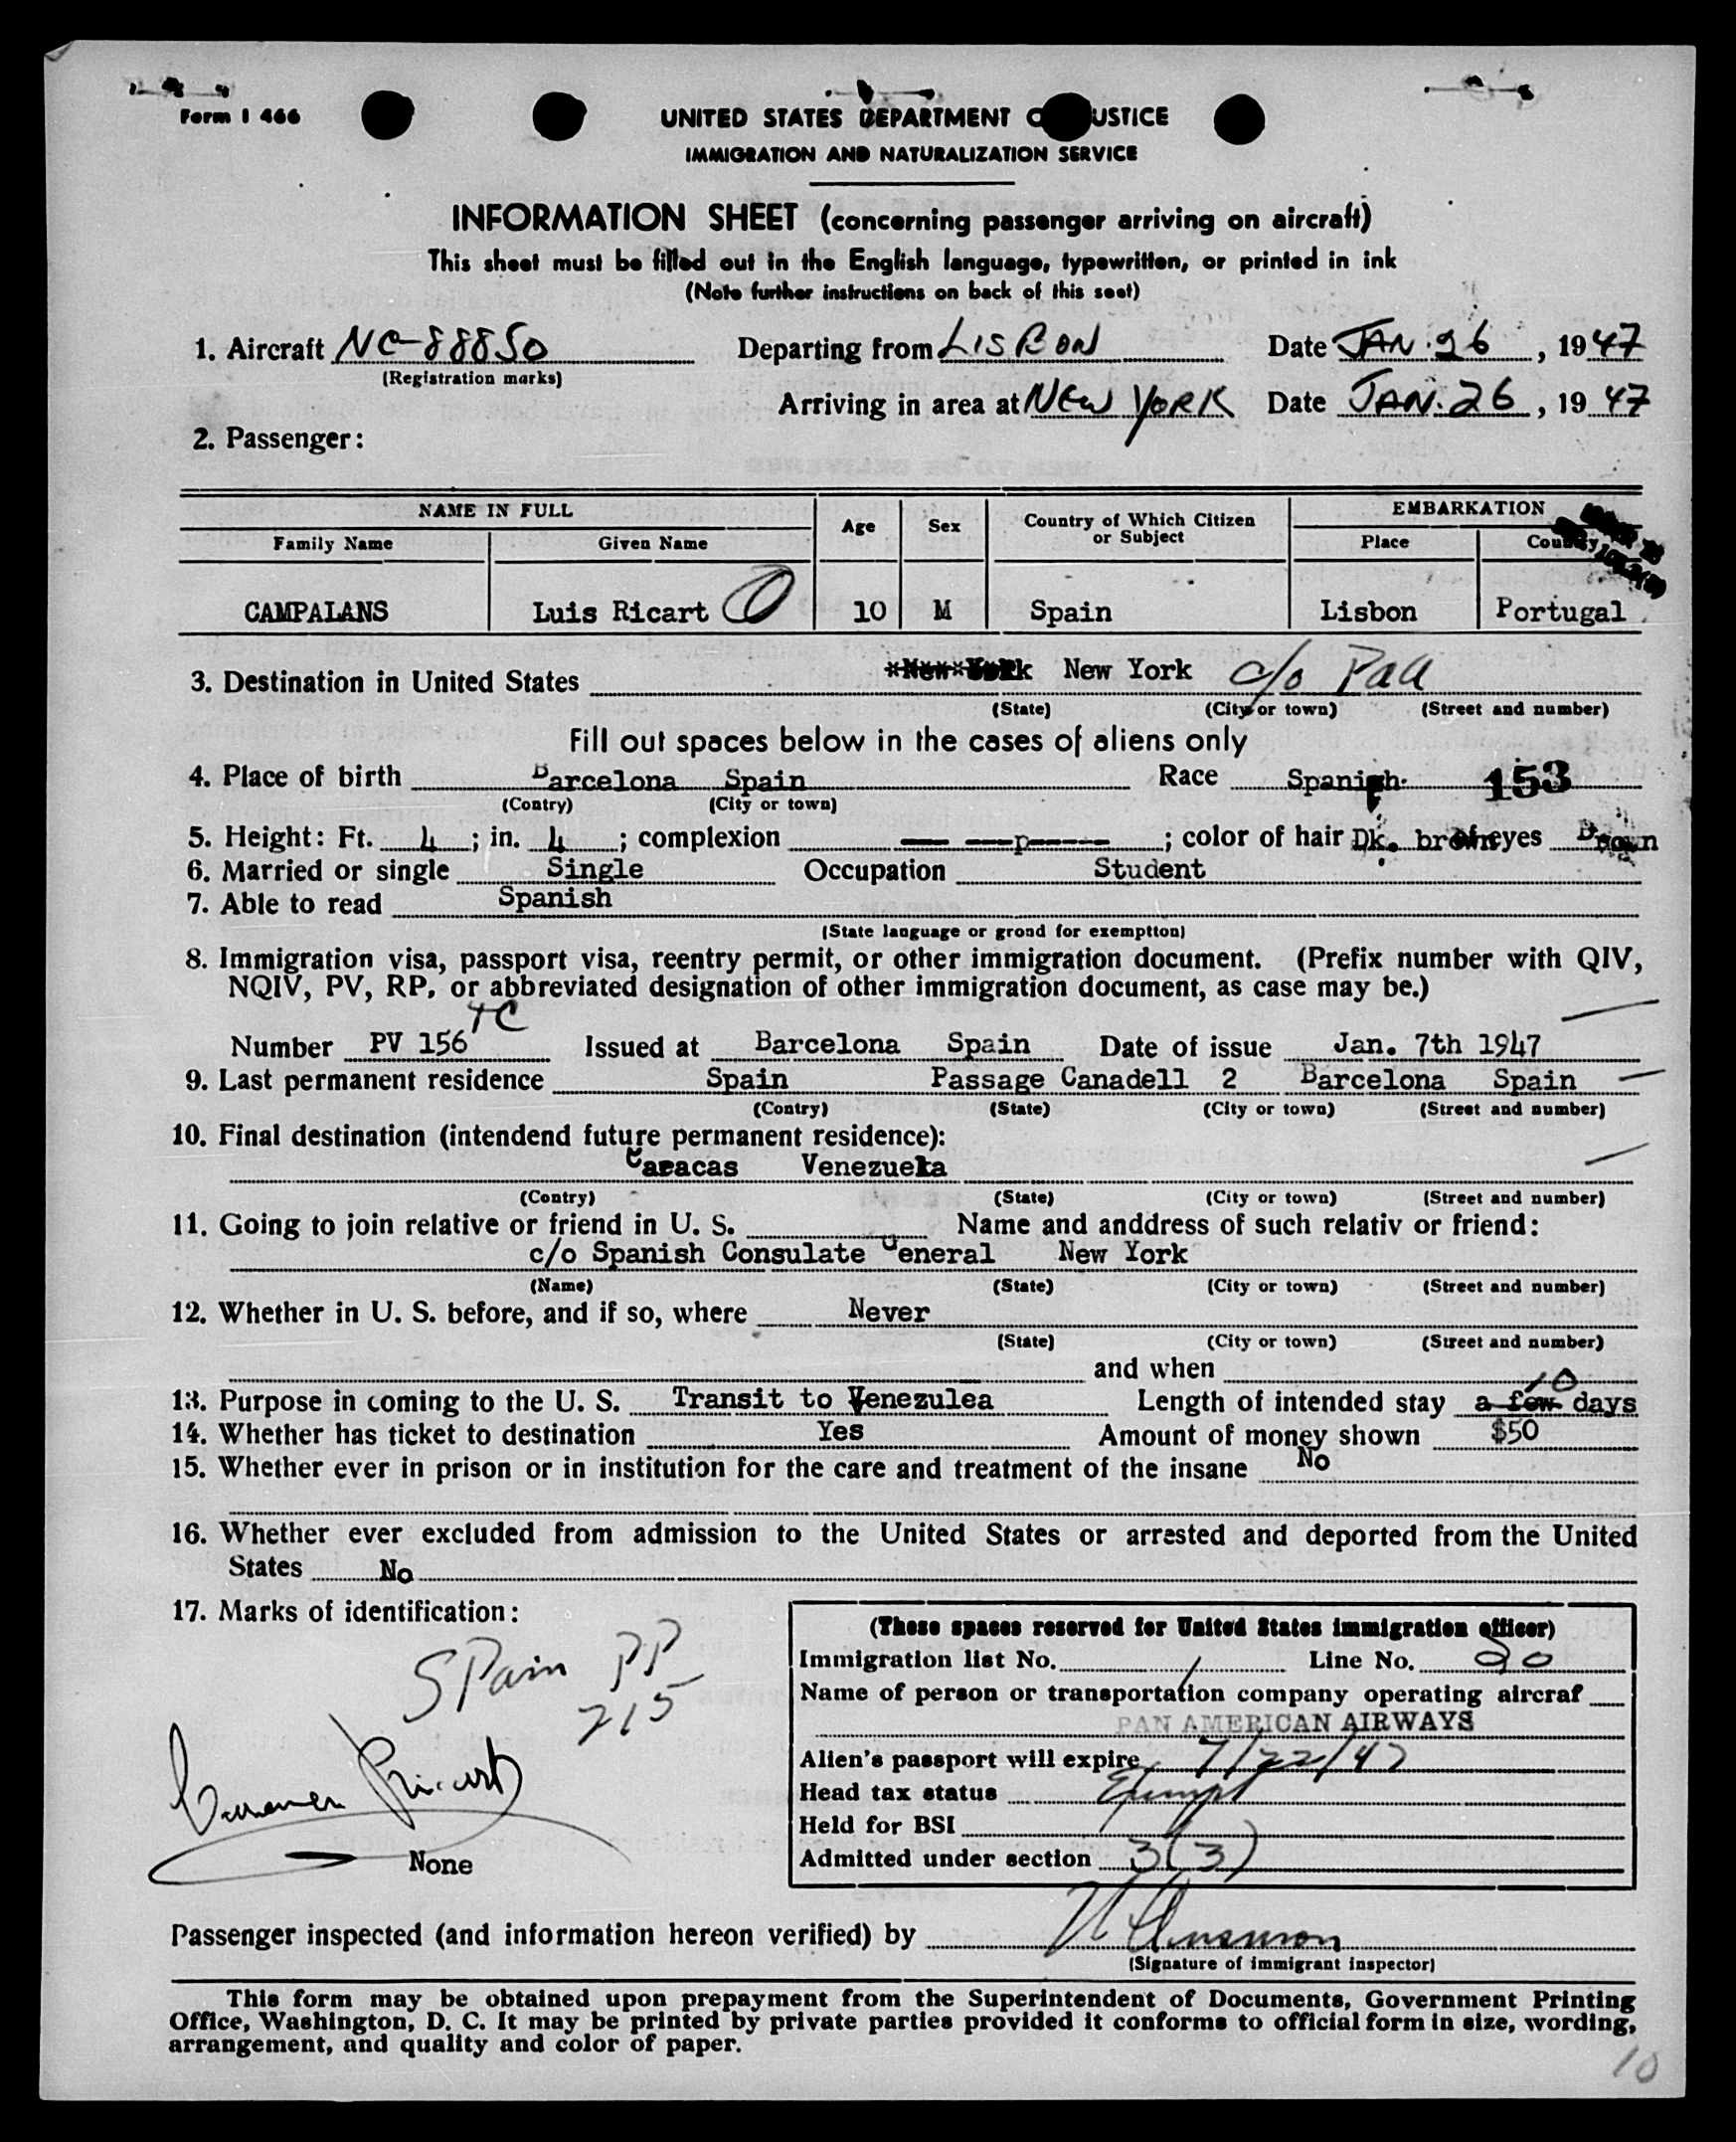 Form I 466
UNITED STATES DEPARTMENT O USTICE
IMMIGRATION AND NATURALIZATION SERVICE
INFORMATION SHEET (concerning passenger arriving on aircraft)
This sheet must be filled out in the English language, typewritten, or printed in ink
(Note further instructions on back of this seet)
1. Aircraft NC-88850 Departing from LISBON Date JAN. 26, 1947
(Registration marks)
Arriving in area at NEW YORK Date JAN. 26, 1947
2. Passenger:
NAME IN FULL Age Sex Country of Which Citizen or Subject EMBARKATION
Family Name Given Name Place Country
CAMPALANS Luis Ricart 10 M Spain Lisbon Portugal
3. Destination in United States New York New York c/o Paa
(State) (City or town) (Street and number)
Fill out spaces below in the cases of aliens only
4. Place of birth Barcelona Spain Race Spanish 153
(Contry) (City or town)
5. Height: Ft. 4; in. 4; complexion -- ---p-----; color of hair Dk. brown eyes Brown
6. Married or single Single Occupation Student
7. Able to read Spanish
(State language or grond for exemptton)
8. Immigration visa, passport visa, reentry permit, or other immigration document. (Prefix number with QIV,
NQIV, PV, RP, or abbreviated designation of other immigration document, as case may be.)
Number PV 156 TC Issued at Barcelona Spain Date of issue Jan. 7th 1947
9. Last permanent residence Spain Passage Canadell 2 Barcelona Spain
(Contry) (State) (City or town) (Street and number)
10. Final destination (intendend future permanent residence):
Caracas Venezuela
(Contry) (State) (City or town) (Street and number)
11. Going to join relative or friend in U. S. Name and anddress of such relativ or friend:
c/o Spanish Consulate General New York
(Name) (State) (City or town) (Street and number)
12. Whether in U. S. before, and if so, where Never
(State) (City or town) (Street and number)
and when
13. Purpose in coming to the U. S. Transit to Venezulea Length of intended stay a few 10 days
14. Whether has ticket to destination Yes Amount of money shown $50
15. Whether ever in prison or in institution for the care and treatment of the insane No
16. Whether ever excluded from admission to the United States or arrested and deported from the United
States No
17. Marks of identification:
SPain PP
215
Carmen Ricart
None
(These spaces reserved for United States immigration officer)
Immigration list No. 1 Line No. 20
Name of person or transportation company operating aircraf
PAN AMERICAN AIRWAYS
Alien's passport will expire 7/22/47
Head tax status Exempt
Held for BSI
Admitted under section 3(3)
Passenger inspected (and information hereon verified) by
(Signature of immigrant inspector)
This form may be obtained upon prepayment from the Superintendent of Documents, Government Printing
Office, Washington, D. C. It may be printed by private parties provided it conforms to official form in size, wording,
arrangement, and quality and color of paper.
10